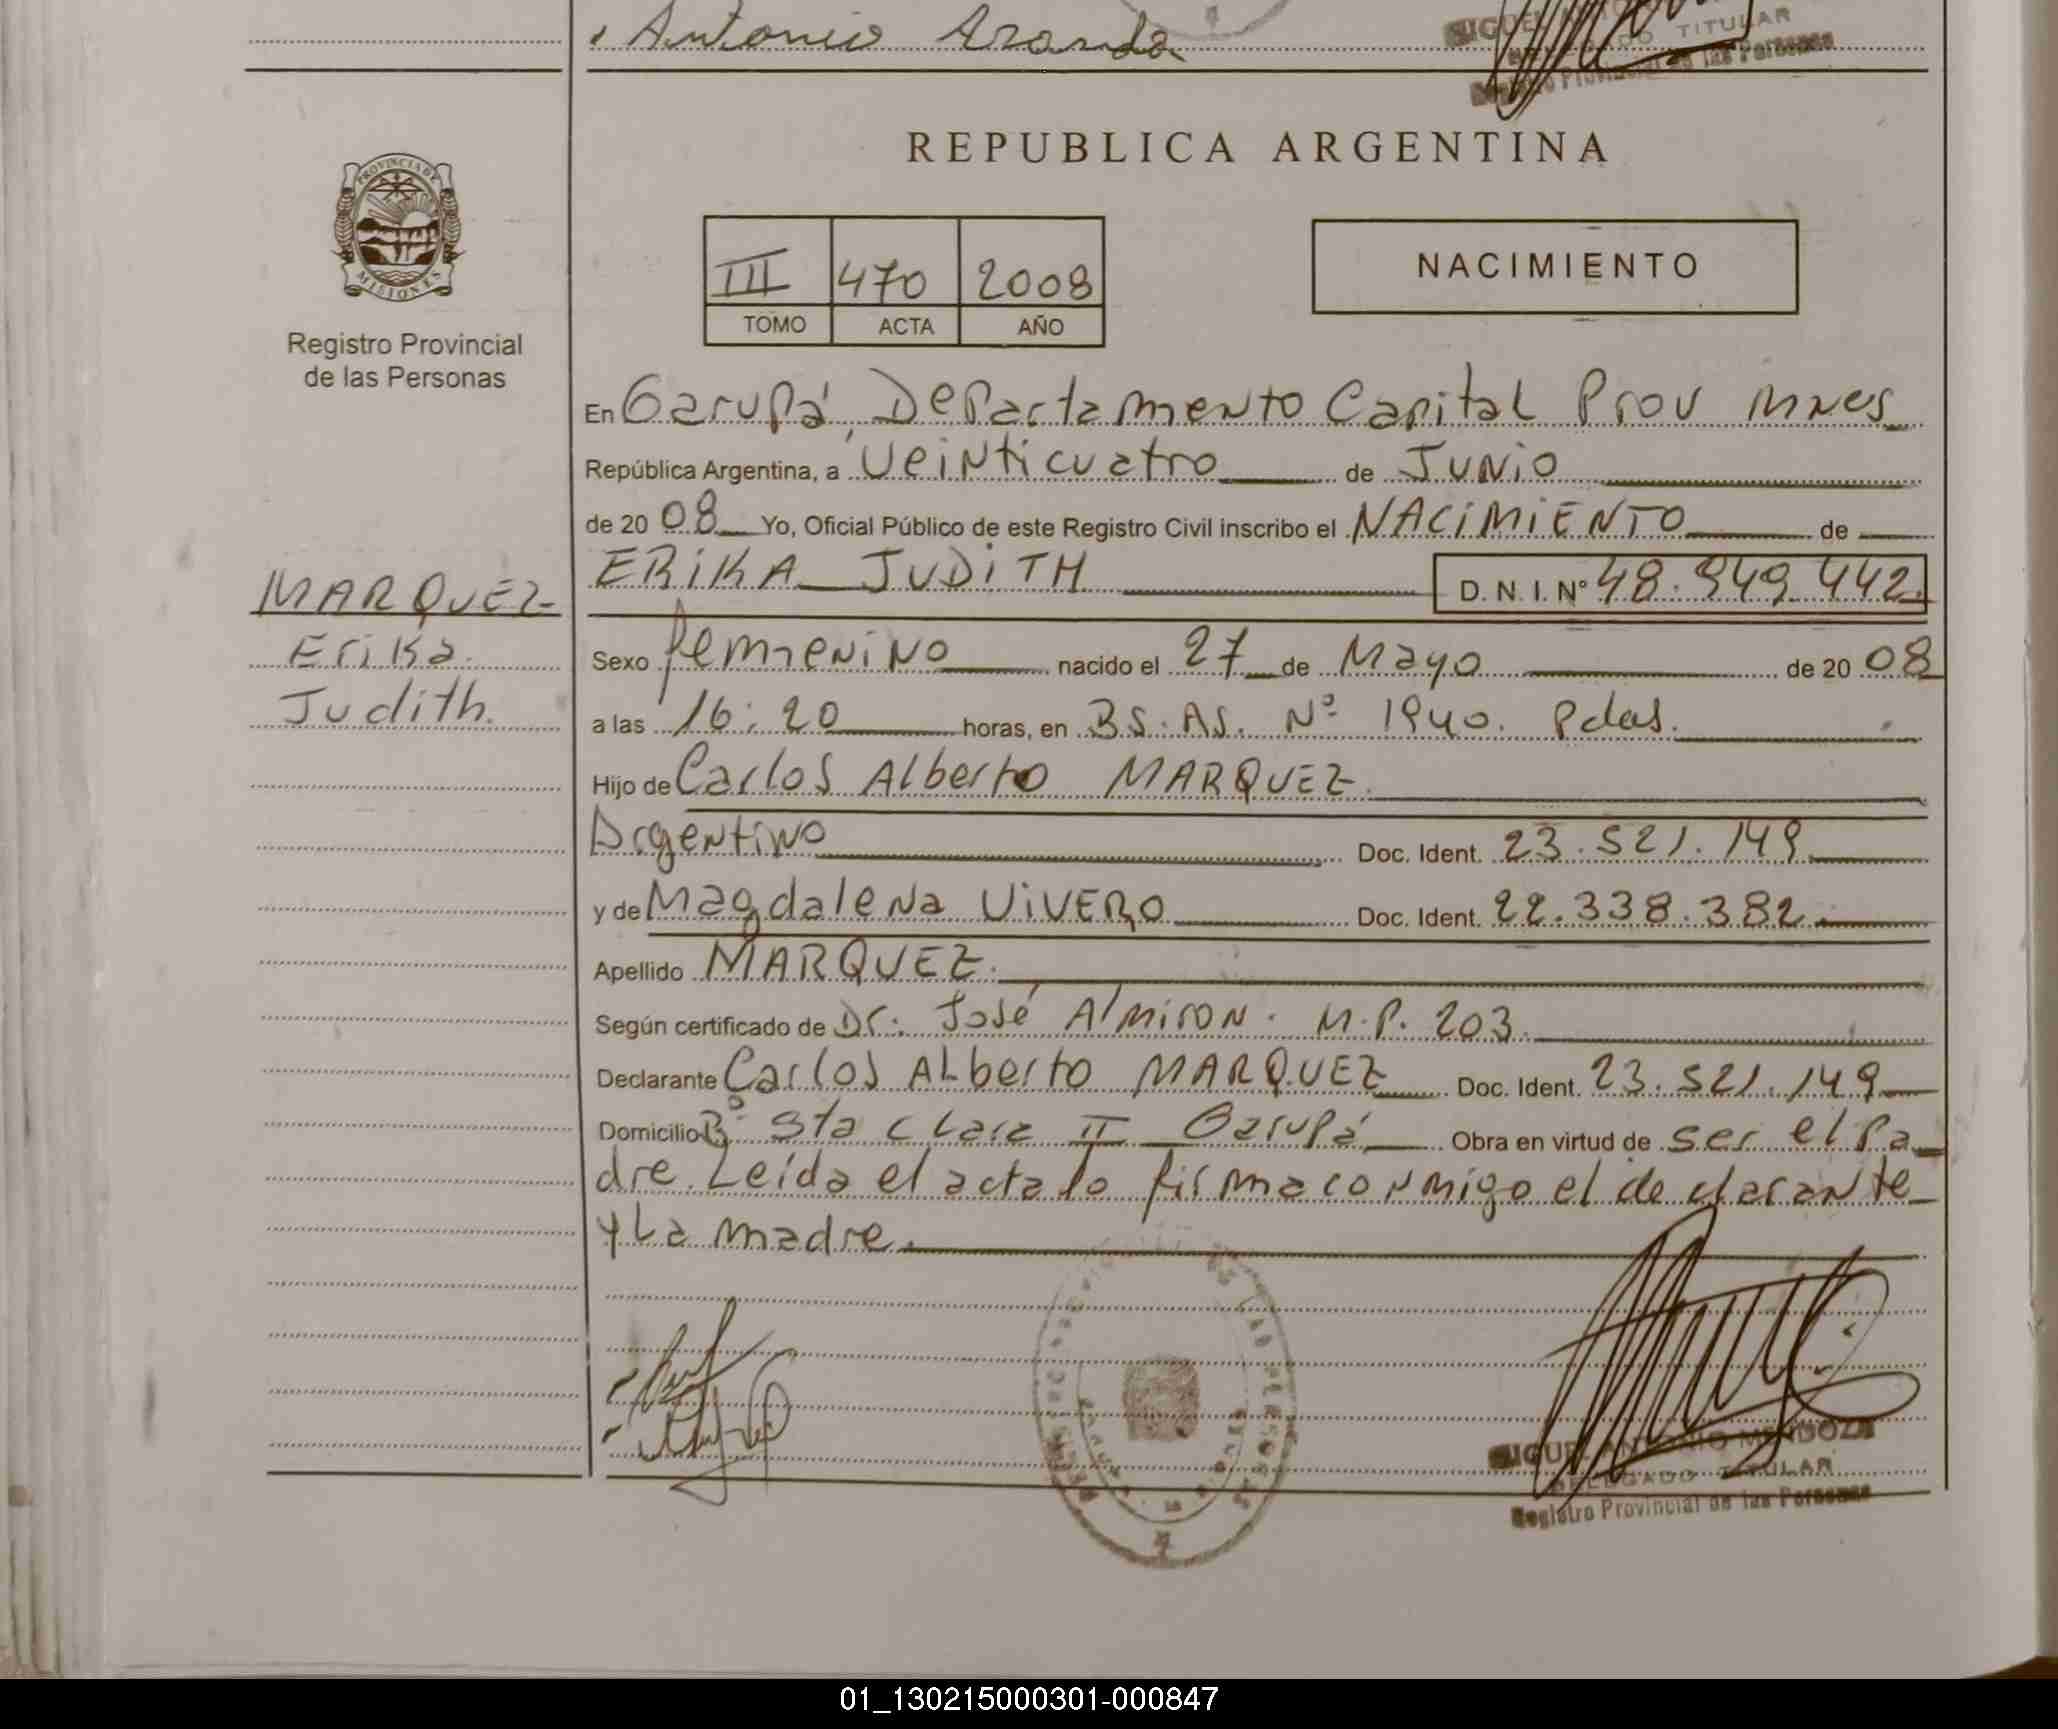 Antonio Aranda
TITULAR
Registro Provincial de las Personas
REPUBLICA ARGENTINA
PROVINCIA DE MISIONES
Registro Provincial
de las Personas
III 470 2008
TOMO ACTA AÑO
NACIMIENTO
En Garupá, Departamento Capital Prov Mnes
República Argentina, a Veinticuatro de Junio
de 2008 Yo, Oficial Público de este Registro Civil inscribo el NACIMIENTO de
ERIKA JUDITH D. N. I. Nº 48.949.442
MARQUEZ
Erika
Judith.
Sexo femenino nacido el 27 de Mayo de 2008
a las 16:20 horas, en BS. AS. Nº 1940. Pdas.
Hijo de Carlos Alberto MARQUEZ.
Argentino Doc. Ident. 23.521.149
y de Magdalena VIVERO Doc. Ident. 22.338.382
Apellido MARQUEZ.
Según certificado de Dr. José Almiron. M.P. 203.
Declarante Carlos Alberto MARQUEZ Doc. Ident. 23.521.149
Domicilio Bº Sta Clara II Garupá Obra en virtud de ser el Pa
dre. Leída el acta lo firma conmigo el declarante
y la madre.
MIGUEL ANTONIO MENDOZA
DELEGADO TITULAR
Registro Provincial de las Personas
01_130215000301-000847